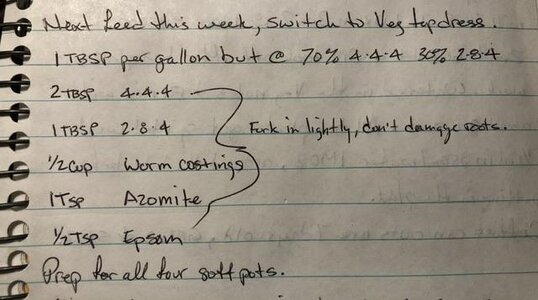 Next feed this week, switch to Veg topdress.
1 TBSP per gallon but @ 70% 4-4-4 30% 2-8-4
2 TBSP 4-4-4
1 TBSP 2-8-4 Fork in lightly, don't damage roots.
1/2 cup Worm castings
1 Tsp Azomite
1/2 Tsp Epsom
Prep for all four soft pots.